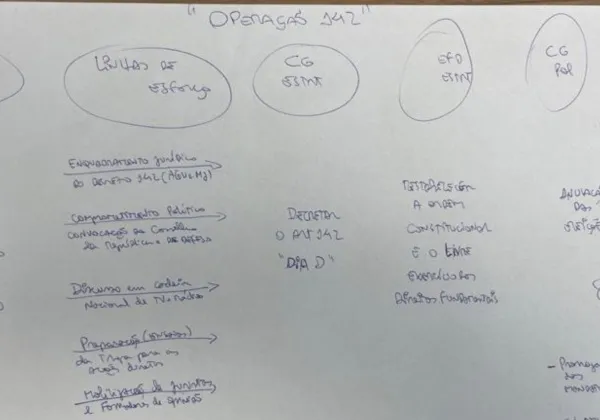 "OPERAÇÃO 142"
LINHAS DE
ESFORÇO
CG
ESTRT
EFD
ESTRT
CG
POL
ENQUADRAMENTO JURÍDICO
DO DECRETO 142 (AGU e MJ)
COMPROMETIMENTO POLÍTICO
CONVOCAÇÃO do Conselho
da República e DE DEFESA
Discurso em cadeia
Nacional de TV e Rádio
Preparação
da Tropa para as
ações diretas
Mobilização de juristas
e Formadores de opinião
DECRETAR
O ART 142
"DIA D"
A ORDEM
CONSTITUCIONAL
E O LIVRE
EXERCÍCIO DOS
DIREITOS FUNDAMENTAIS
DAS
DOS